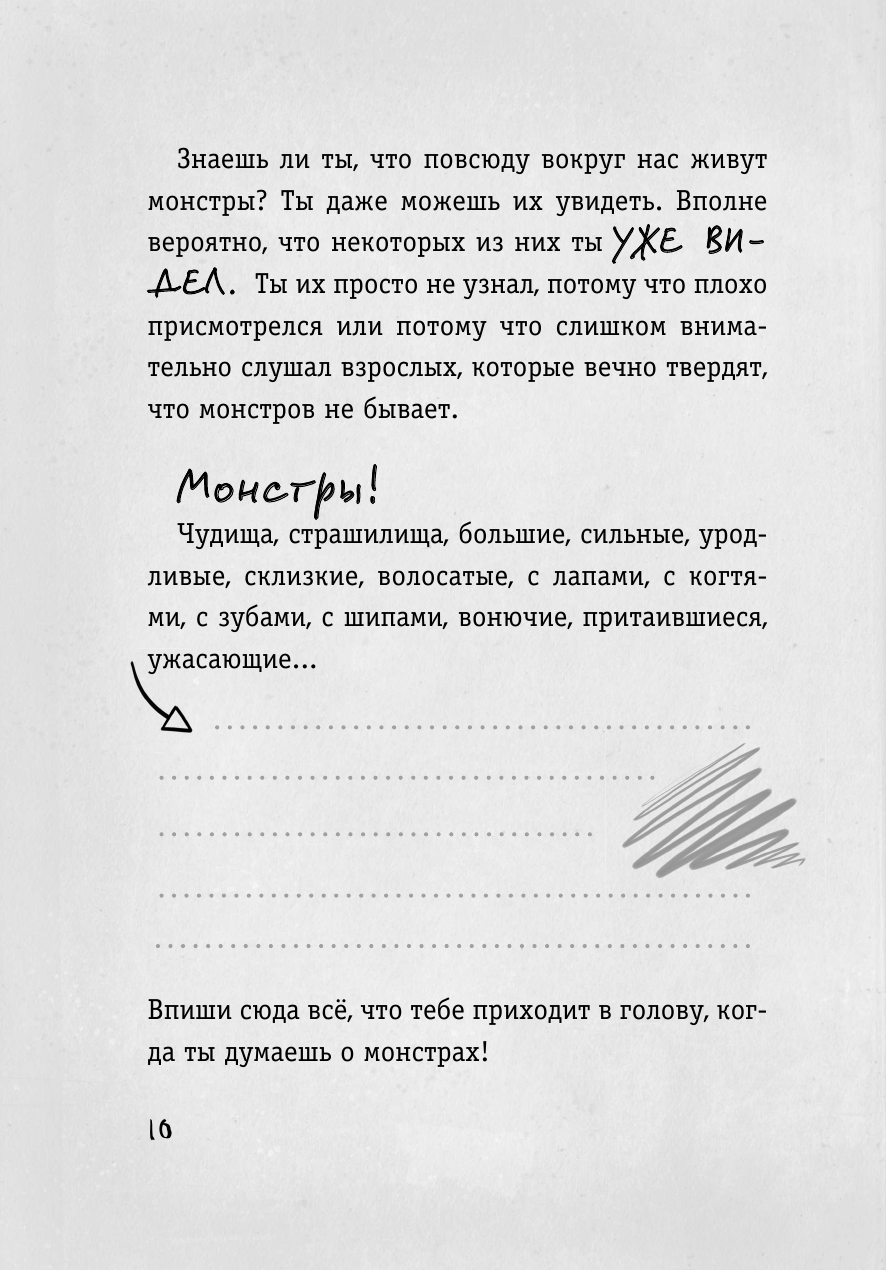 Знаешь ли ты, что повсюду вокруг нас живут
монстры? Ты даже можешь их увидеть. Вполне
вероятно, что некоторых из них ты УЖЕ ВИ-
ДЕЛ. Ты их просто не узнал, потому что плохо
присмотрелся или потому что слишком внима-
тельно слушал взрослых, которые вечно твердят,
что монстров не бывает.
Монстры!
Чудища, страшилища, большие, сильные, урод-
ливые, склизкие, волосатые, с лапами, с когтя-
ми, с зубами, с шипами, вонючие, притаившиеся,
ужасающие...
Впиши сюда всё, что тебе приходит в голову, ког-
да ты думаешь о монстрах!
16